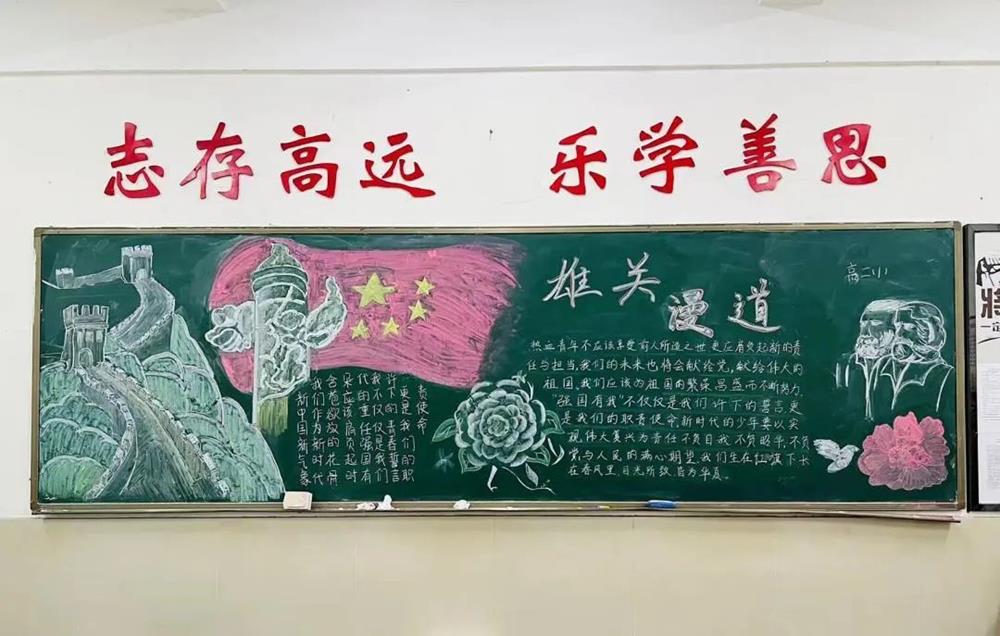 志存高远 乐学善思
新中国新气象
我们作为新时代
含苞欲放的花骨
朵应该肩负起时
代的重任强国有
我不仅仅是我们
许下的青春誓言
更是我们的职
责使命
雄关
漫道
高二
热血青年不应该享受前人所造之世更应肩负起新的责
任与担当,我们的未来也将会献给党,献给伟大的
祖国,我们应该为祖国的繁荣昌盛而不断努力,
"强国有我"不仅仅是我们许下的誓言,更
是我们的职责使命,新时代的少年要以实
现伟大复兴为责任不负自我不负韶华,不负
党与人民的满心期望我们生在红旗下长
在春风里,目光所致皆为华夏。